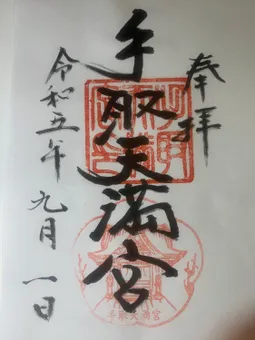 奉拝
手取天満宮
令和五年
九月一日
手取天満宮